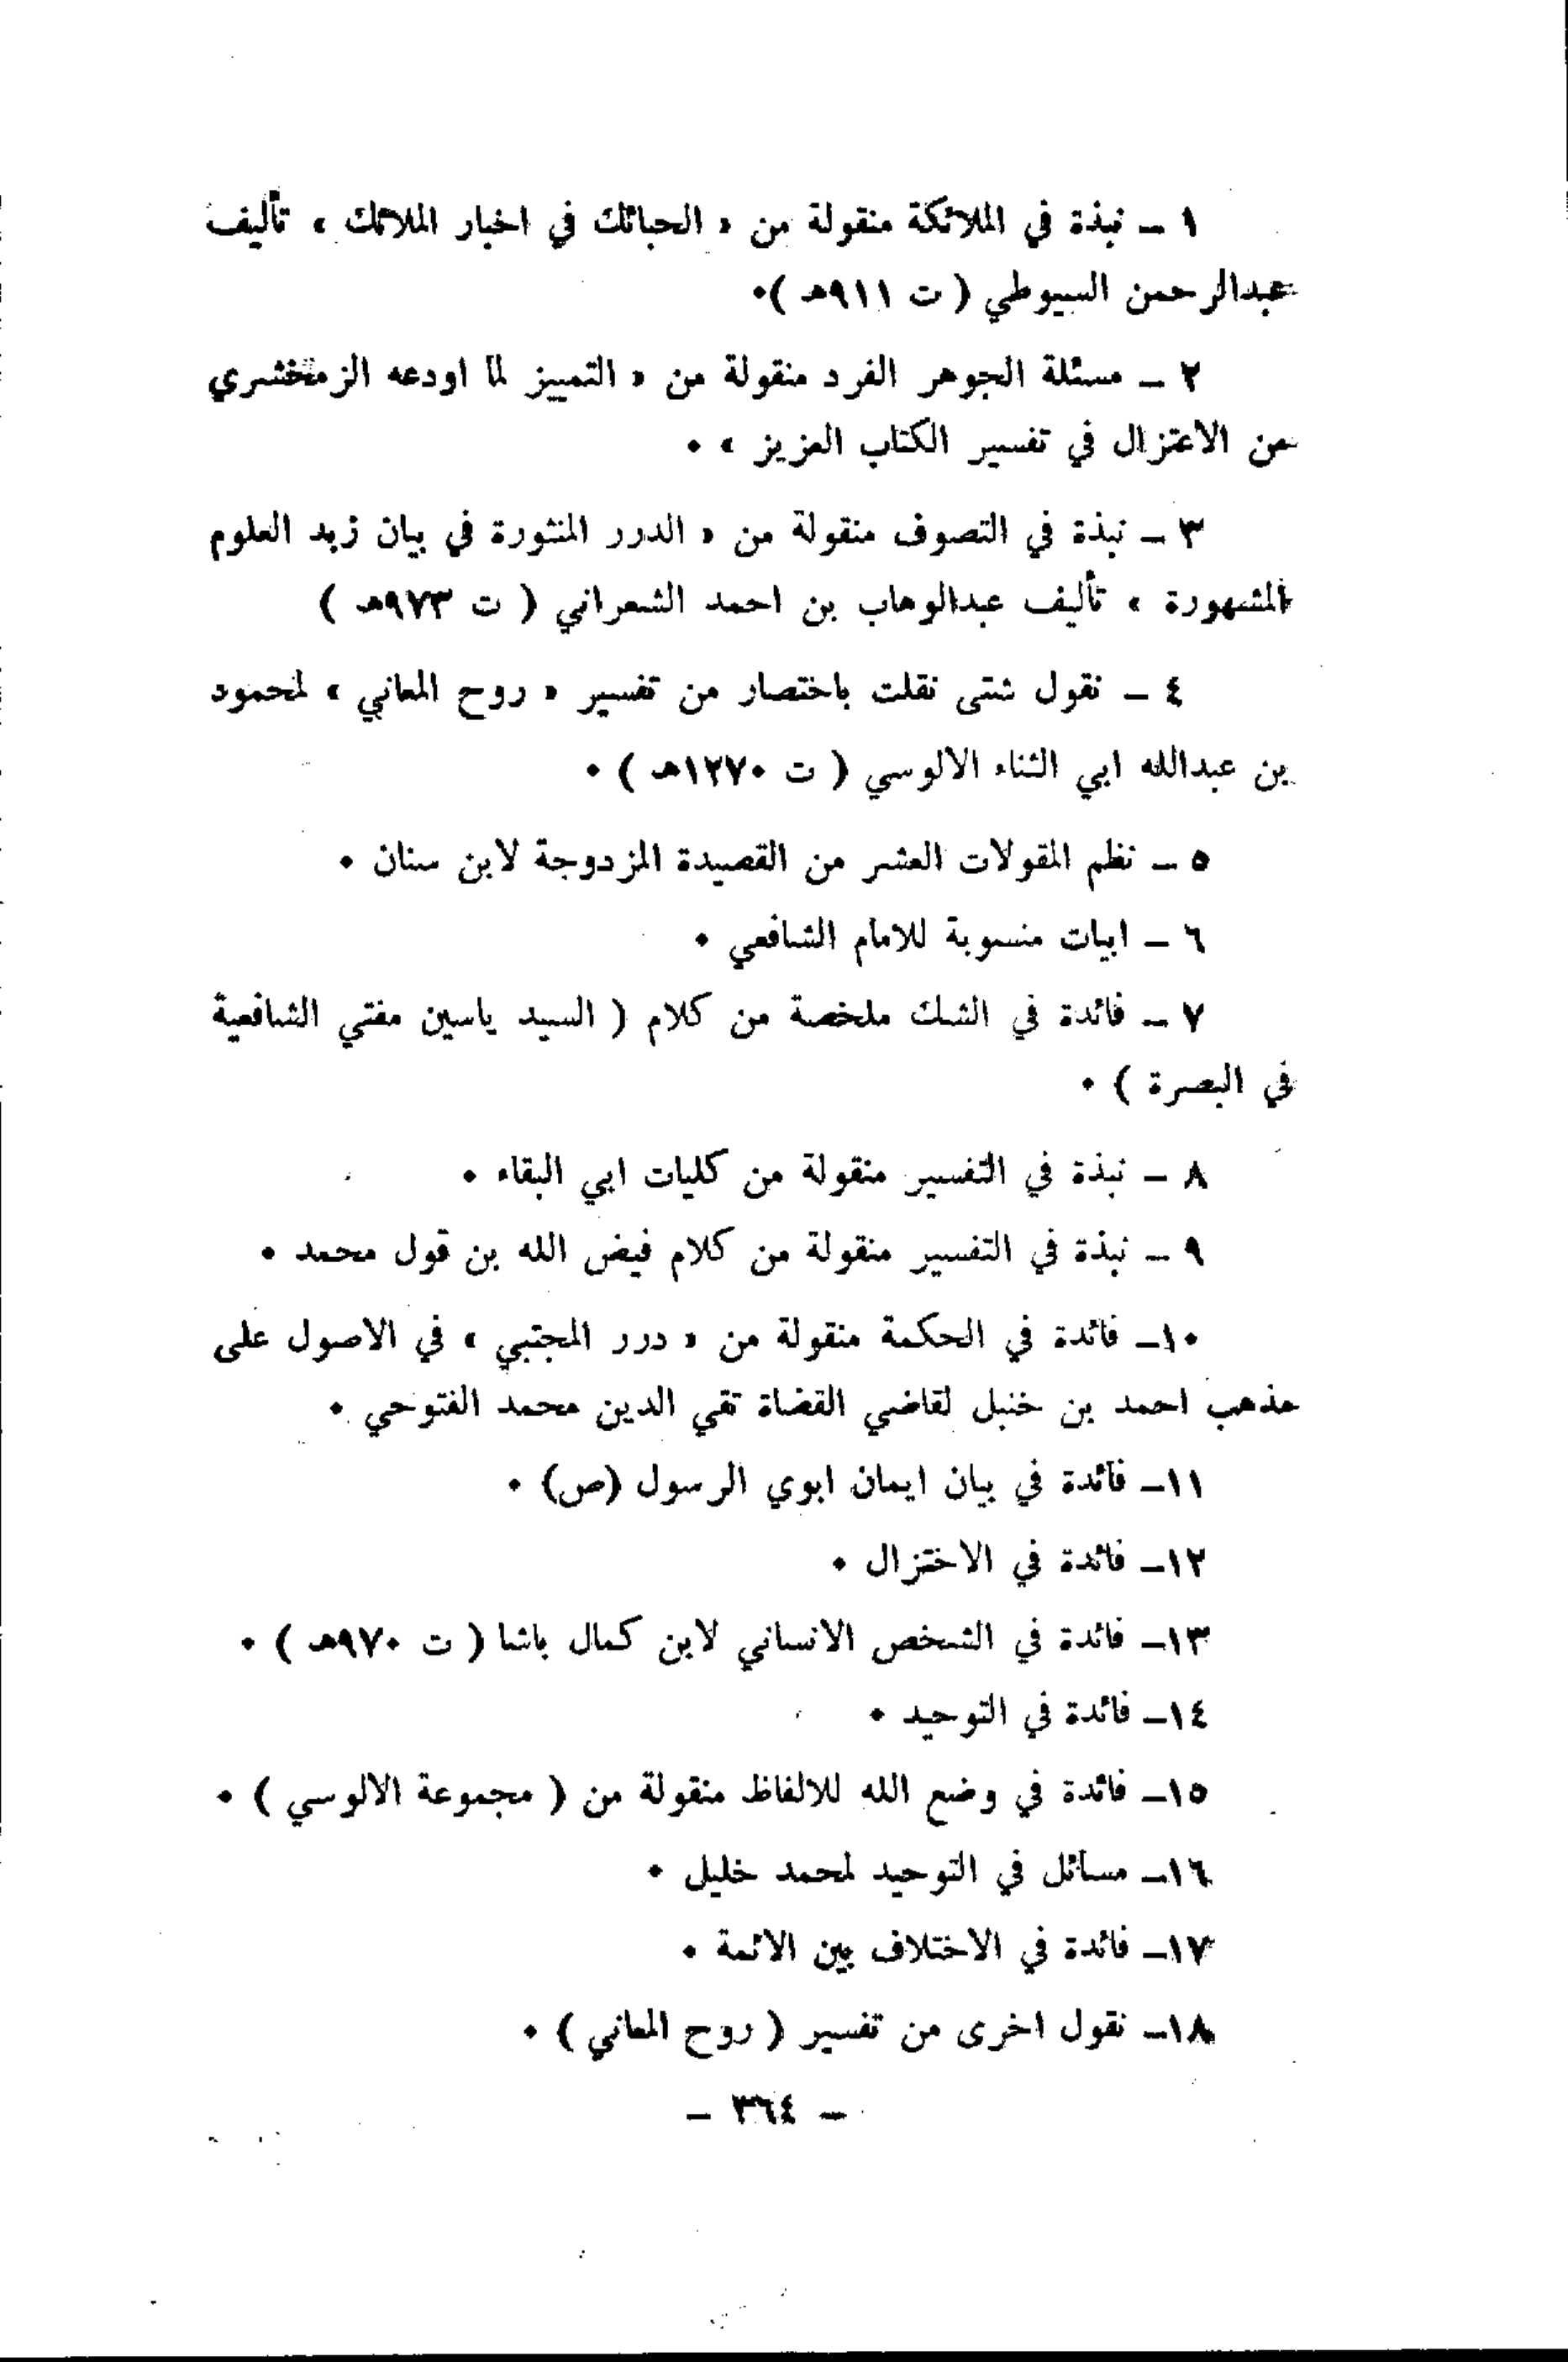 ١ ــ نبذة في الملائكة منقولة من « الحبائك في اخبار الملائك » تأليف
عبدالرحمن السيوطي ( ت ٩١١هـ )٠
٢ ــ مسئلة الجوهر الفرد منقولة من « التمييز لما اودعه الزمخشري
من الاعتزال في تفسير الكتاب العزيز » ٠
٣ ــ نبذة في التصوف منقولة من « الدرر المنثورة في بيان زبد العلوم
المشهورة » تأليف عبدالوهاب بن احمد الشعراني ( ت ٩٧٣هـ )
٤ ــ نقول شتى نقلت باختصار من تفسير « روح المعاني » لمحمود
بن عبدالله ابي الثناء الالوسي ( ت ١٢٧٠هـ ) ٠
٥ ــ نظم المقولات العشر من القصيدة المزدوجة لابن سنان ٠
٦ ــ ابيات منسوبة للامام الشافعي ٠
٧ ــ فائدة في الشك ملخصة من كلام ( السيد ياسين مفتي الشافعية
في البصرة ) ٠
٨ ــ نبذة في التفسير منقولة من كليات ابي البقاء ٠
٩ ــ نبذة في التفسير منقولة من كلام فيض الله بن قول محمد ٠
١٠ــ فائدة في الحكمة منقولة من « درر المجتبي » في الاصول على
مذهب احمد بن خنبل لقاضي القضاة تقي الدين محمد الفتوحي ٠
١١ــ فائدة في بيان ايمان ابوي الرسول (ص) ٠
١٢ــ فائدة في الاختزال ٠
١٣ــ فائدة في الشخص الانساني لابن كمال باشا ( ت ٩٧٠هـ ) ٠
١٤ــ فائدة في التوحيد ٠
١٥ــ فائدة في وضع الله للالفاظ منقولة من ( مجموعة الالوسي ) ٠
١٦ــ مسائل في التوحيد لمحمد خليل ٠
١٧ــ فائدة في الاختلاف بين الائمة ٠
١٨ــ نقول اخرى من تفسير ( روح المعاني ) ٠
ــ ٣٦٤ ــ